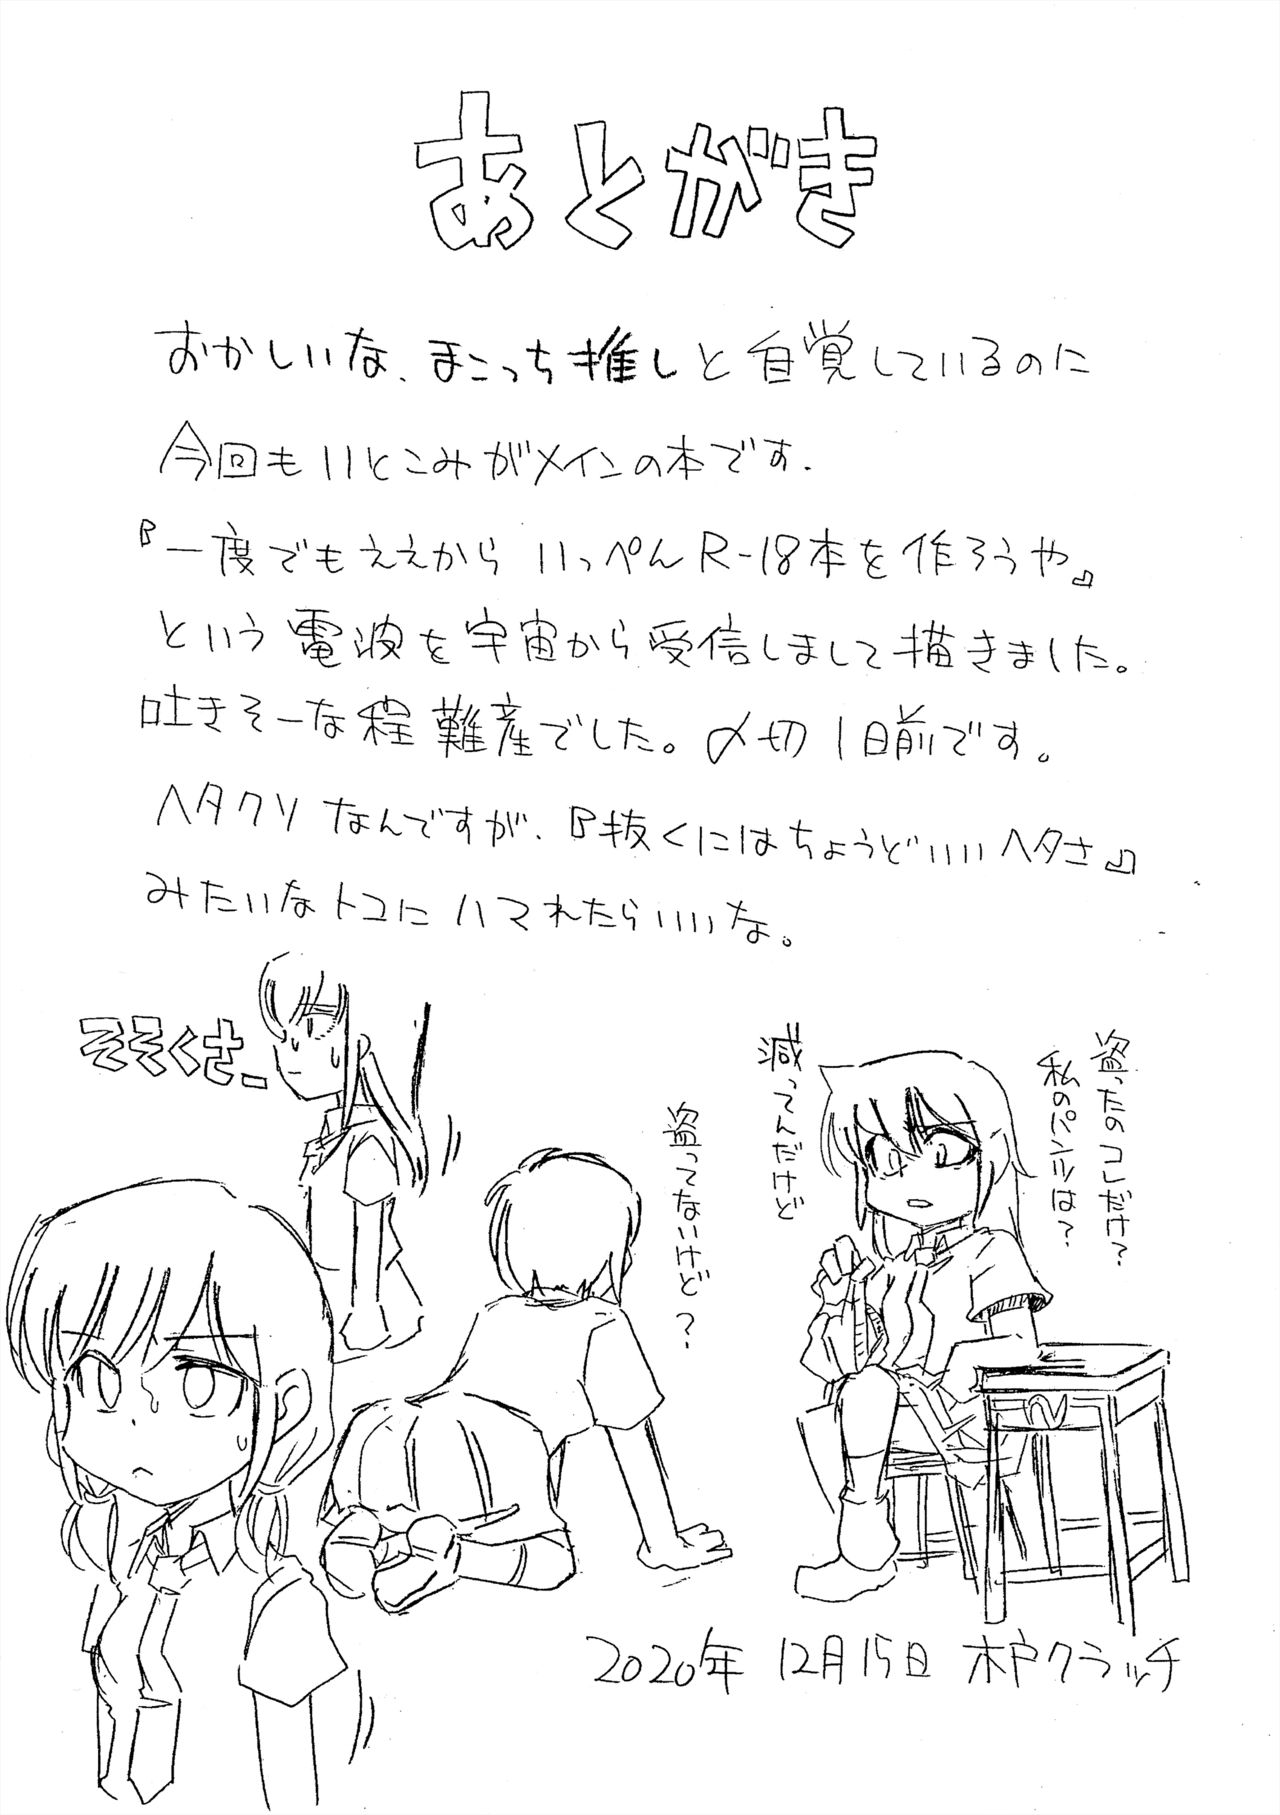 あとがき
おかしいな、まこっち推しと自覚しているのに
今回もいとこみがメインの本です.
『一度でもええから いっぺんR-18本を作ろうや』
という電波を宇宙から受信しまして描きました。
吐きそーな程難産でした。〆切1日前です。
ヘタクソなんですが、『抜くにはちょうどいいヘタさ』
みたいなトコにハマれたらいいな。
盗ったのコレだけ?
私のパンツは?
減ってんだけど
盗ってないけど?
そそくさ_
2020年 12月15日 木戸クラッチ